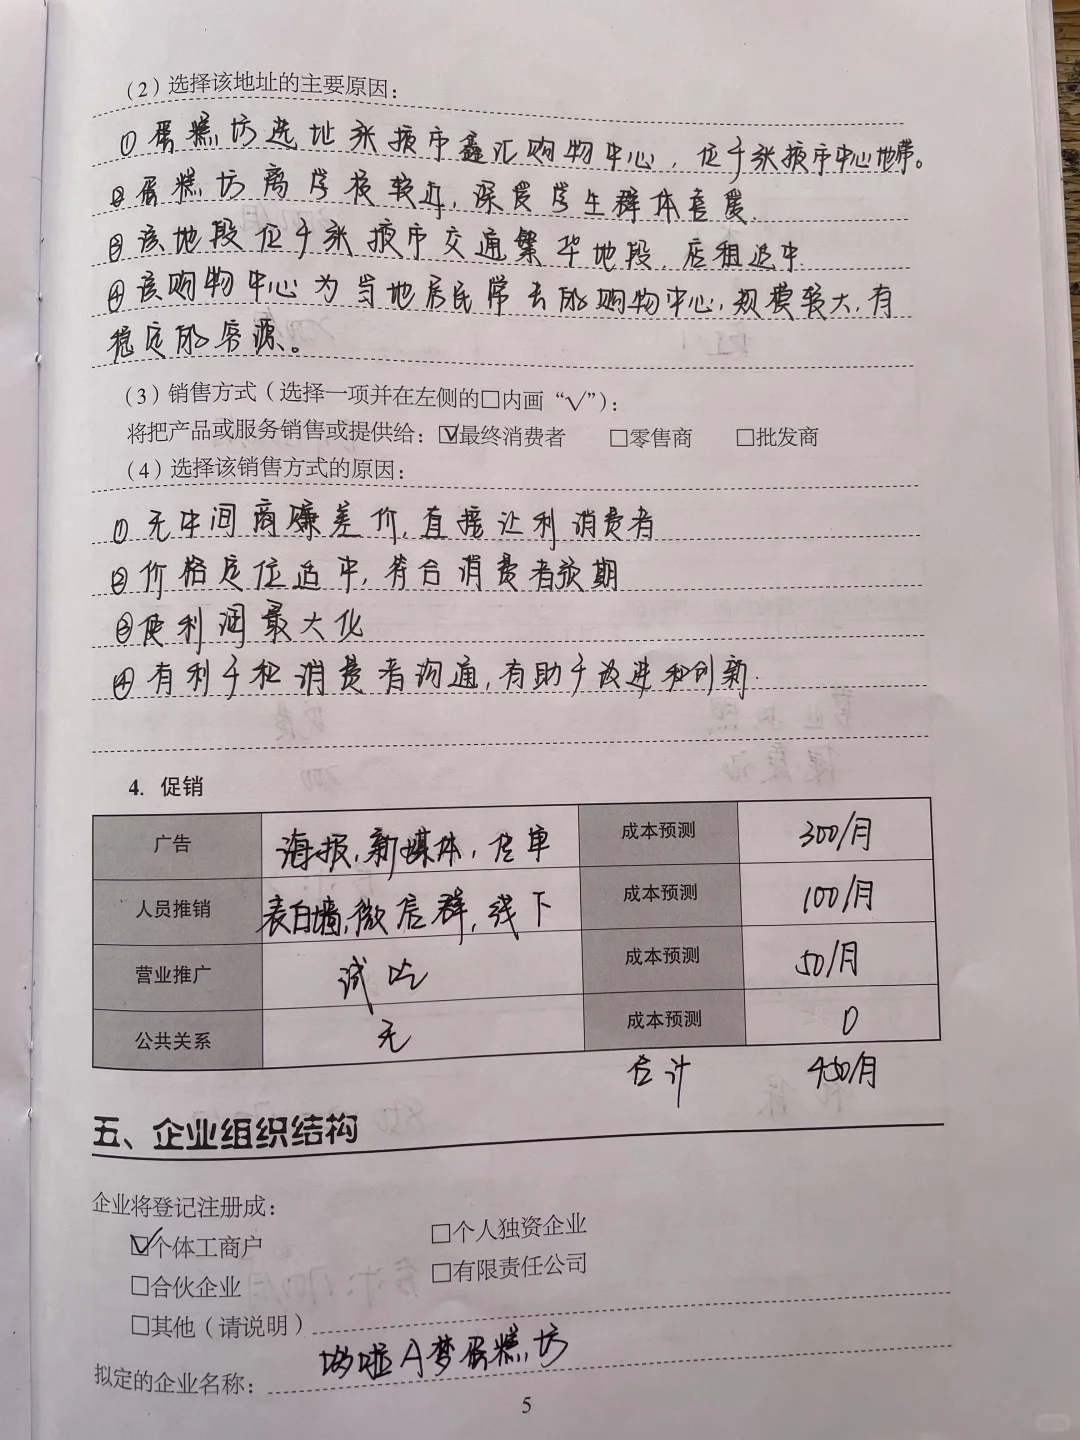 （2）选择该地址的主要原因：
①蛋糕坊选址张掖市鑫汇购物中心，位于张掖市中心地带。
②蛋糕坊离学校较近，深受学生群体喜爱.
③该地段位于张掖市交通繁华地段，店租适中.
④该购物中心为当地居民常去的购物中心，规模较大，有
稳定的客源。
（3）销售方式（选择一项并在左侧的□内画“√”）：
将把产品或服务销售或提供给：☑最终消费者 □零售商 □批发商
（4）选择该销售方式的原因：
①无中间商赚差价，直接让利消费者
②价格定位适中，符合消费者预期
③使利润最大化
④有利于和消费者沟通，有助于改进和创新.
4. 促销
广告 海报，新媒体，传单 成本预测 300/月
人员推销 表白墙，微店群，线下 成本预测 100/月
营业推广 试吃 成本预测 50/月
公共关系 无 成本预测 0
合计 450/月
五、企业组织结构
企业将登记注册成：
☑个体工商户 □个人独资企业
□合伙企业 □有限责任公司
□其他（请说明）
拟定的企业名称： 哆啦A梦蛋糕坊
5